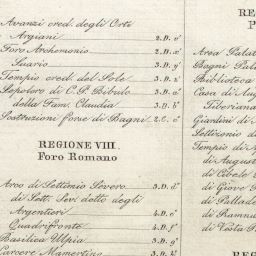 Avanzi cred. degli Orti
Argiani 2.D.
Foro Archemonio 2.D.
Suario 3.D.
Tempio cred. del Sole 3.D.
Sepolcro di C. P. Bibulo 3.D.
della Fam. Claudia 3.D.
Sostruzioni forse di Bagni 2.C.
REGIONE VIII.
Foro Romano
Arco di Settimio Severo 3.D.
di Sett. Sev. detto degli
Argentieri 4.D.
Quadrifronte 4.D.
Basilica Ulpia 3.D.
Carcere Mamertino 3.D.
RE
Area Palat
Bagni Pala
Biblioteca
Casa di Aug
Tiberiana
Giardini di
Settizonio d
Tempio di
di August
di Cibele
di Giove
di Pallade
di Ramnu
di Vesta P
RE